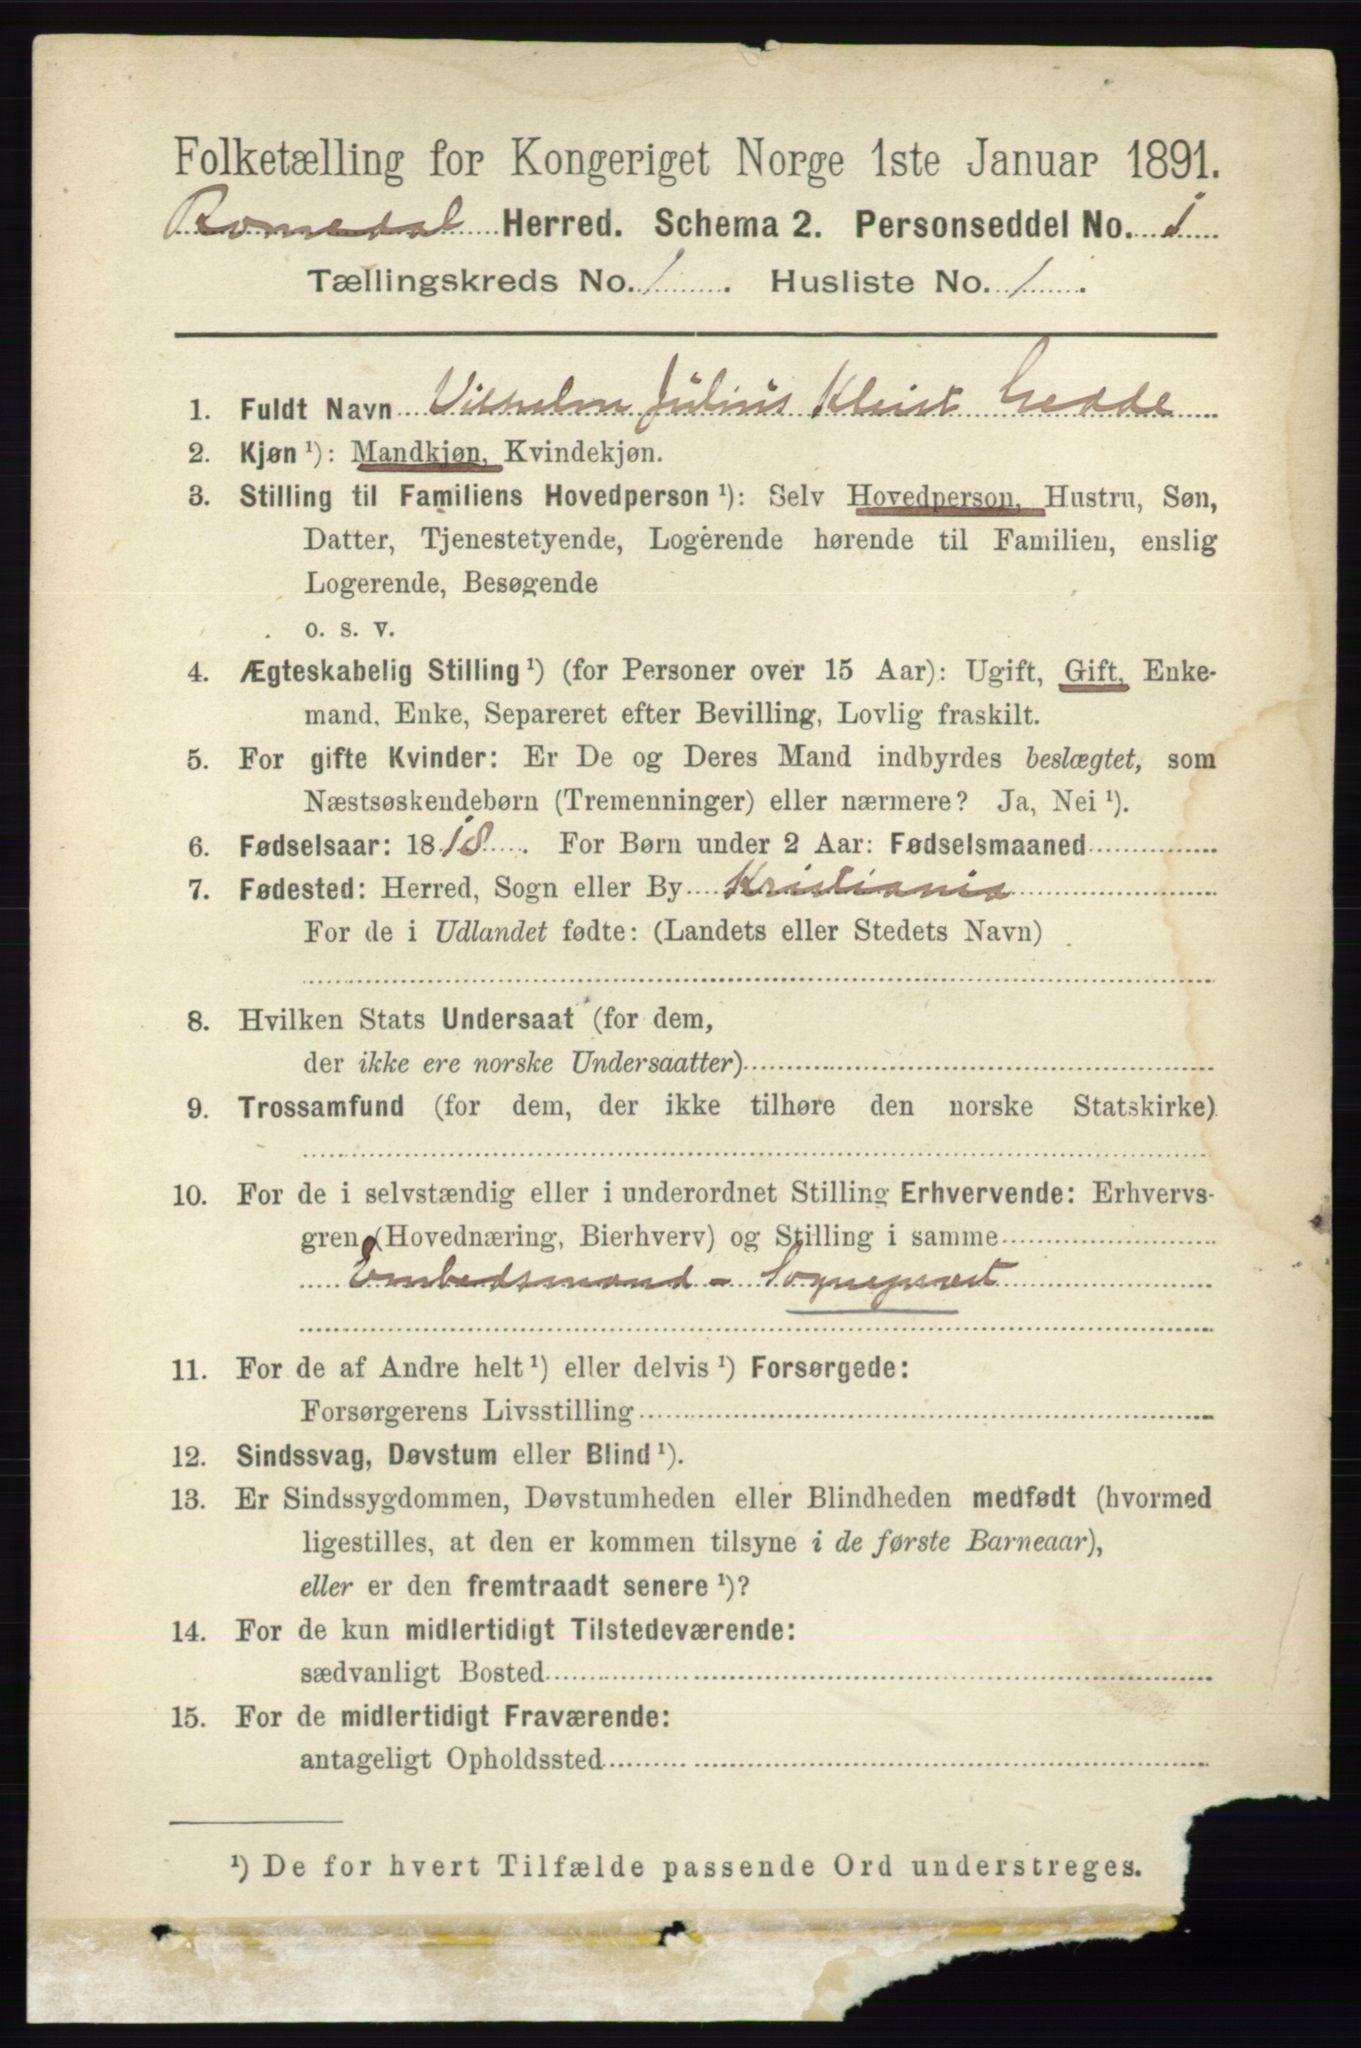 Folketælling for Kongeriget Norge 1ste Januar 1891.
Romedal Herred. Schema 2. Personseddel No. 1
Tællingskreds No. 1. Husliste No. 1.
1. Fuldt Navn Vilhelm Julius Kleist Gedde
2. Kjøn ¹): Mandkjøn, Kvindekjøn.
3. Stilling til Familiens Hovedperson ¹): Selv Hovedperson, Hustru, Søn,
Datter, Tjenestetyende, Logerende hørende til Familien, enslig
Logerende, Besøgende
o. s. v.
4. Ægteskabelig Stilling ¹) (for Personer over 15 Aar): Ugift, Gift, Enke-
mand, Enke, Separeret efter Bevilling, Lovlig fraskilt.
5. For gifte Kvinder: Er De og Deres Mand indbyrdes beslægtet, som
Næstsøskendebørn (Tremenninger) eller nærmere? Ja, Nei ¹).
6. Fødselsaar: 1818. For Børn under 2 Aar: Fødselsmaaned
7. Fødested: Herred, Sogn eller By Kristiania
For de i Udlandet fødte: (Landets eller Stedets Navn)
8. Hvilken Stats Undersaat (for dem,
der ikke ere norske Undersaatter)
9. Trossamfund (for dem, der ikke tilhøre den norske Statskirke)
10. For de i selvstændig eller i underordnet Stilling Erhvervende: Erhvervs-
gren (Hovednæring, Bierhverv) og Stilling i samme
Embedsmand - Sogneprest
11. For de af Andre helt ¹) eller delvis ¹) Forsørgede:
Forsørgerens Livsstilling
12. Sindssvag, Døvstum eller Blind ¹).
13. Er Sindssygdommen, Døvstumheden eller Blindheden medfødt (hvormed
ligestilles, at den er kommen tilsyne i de første Barneaar),
eller er den fremtraadt senere ¹)?
14. For de kun midlertidigt Tilstedeværende:
sædvanligt Bosted
15. For de midlertidigt Fraværende:
antageligt Opholdssted
¹) De for hvert Tilfælde passende Ord understreges.